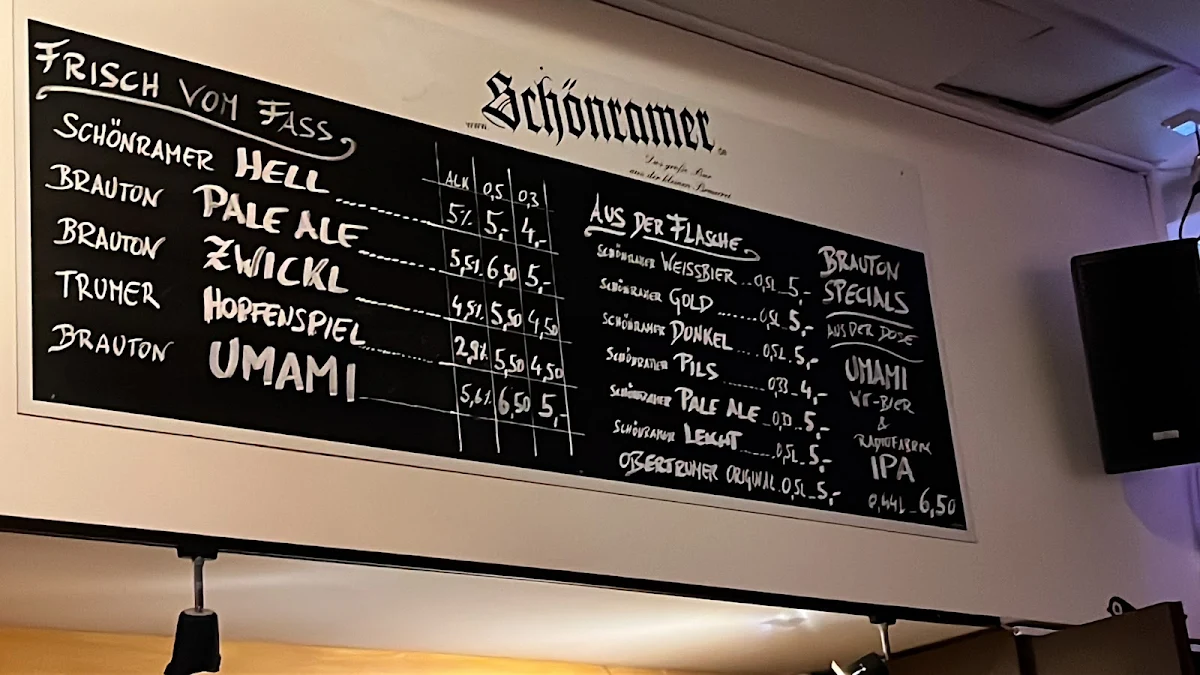 Schönramer
Das große Bier
aus der kleinen Brauerei
FRISCH VOM FASS
ALK 0,5 0,3
SCHÖNRAMER HELL 5% 5,- 4,-
BRAUTON PALE ALE 5,5% 6,50 5,-
BRAUTON ZWICKL 4,5% 5,50 4,50
TRUMER HOPFENSPIEL 2,9% 5,50 4,50
BRAUTON UMAMI 5,6% 6,50 5,-
AUS DER FLASCHE
SCHÖNRAMER WEISSBIER ... 0,5L 5,-
SCHÖNRAMER GOLD ....... 0,5L 5,-
SCHÖNRAMER DUNKEL .... 0,5L. 5,-
SCHÖNRAMER PILS ....... 0,33 4,-
SCHÖNRAMER PALE ALE .. 0,33 .. 5,-
SCHÖNRAMER LEICHT ...... 0,5L 5,-
OBERTRUMER ORIGINAL. 0,5L 5,-
BRAUTON
SPECIALS
AUS DER DOSE
UMAMI
WIT-BIER
&
RADIOFABRIK
IPA
0,44L 6,50